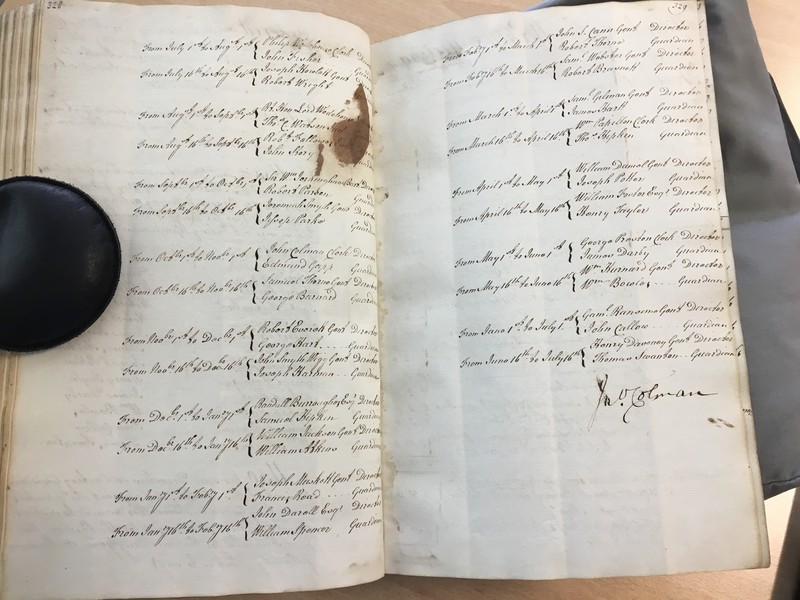 328
From July 1st to Augt 1st { Philip
John Fisher
From July 16th to Augt 16th { Joseph Howlett Gent
Robert Wright
From Augt 1st to Septr 1st { Rt Hon Lord Wodehouse
Thos C Watson
From Augt 16th to Septr 16th { Robt
John Story
From Septr 1st to Octr 1st { Sir Wm Jerningham Bart
Robert Parson
From Septr 16th to Octr 16th { Jeremiah Smyth Gent Director
Jessop Parke
From Octr 1st to Novr 1st { John Colman Clerk Director
Edmund Gapp Guardian
From Octr 16th to Novr 16th { Samuel Thorn Gent Director
George Barnard Guardian
From Novr 1st to Decr 1st { Robert Gent Director
George Hart Guardian
From Novr 16th to Decr 16th { John Smyth Wigg Gent Director
Joseph Harman Guardian
From Decr 1st to Jany 1st { Randall Burroughes Esqr Director
Samuel Hipkin Guardian
From Decr 16th to Jany 16th { William Jackson Gent Director
William Atkins Guardian
From Jany 1st to Feby 1st { Joseph Muskett Gent Director
Francis Road Guardian
From Jany 16th to Feby 16th { John Daroll Esqr Director
William Spencer Guardian
329
From Feby 1st to March 1st { John S. Cann Gent Director
Robert Thorne Guardian
From Feby 16th to March 16th { Saml Webster Gent Director
Robert Guardian
From March 1st to April 1st { Saml Gilman Gent Director
James Hart Guardian
From March 16th to April 16th { Wm Papillon Clerk Director
Thos Hipkin Guardian
From April 1st to May 1st { William Gent Director
Joseph Potter Guardian
From April 16th to May 16th { William Foster Esqr Director
Henry Taylor Guardian
From May 1st to June 1st { George Preston Clerk Director
James Darby Guardian
From May 16th to June 16th { Wm Hurnard Gent Director
Wm Guardian
From June 1st to July 1st { Gaml Ransome Gent Director
John Callow Guardian
From June 16th to July 16th { Henry Gent Director
Thomas Swanton Guardian
Jno Colman